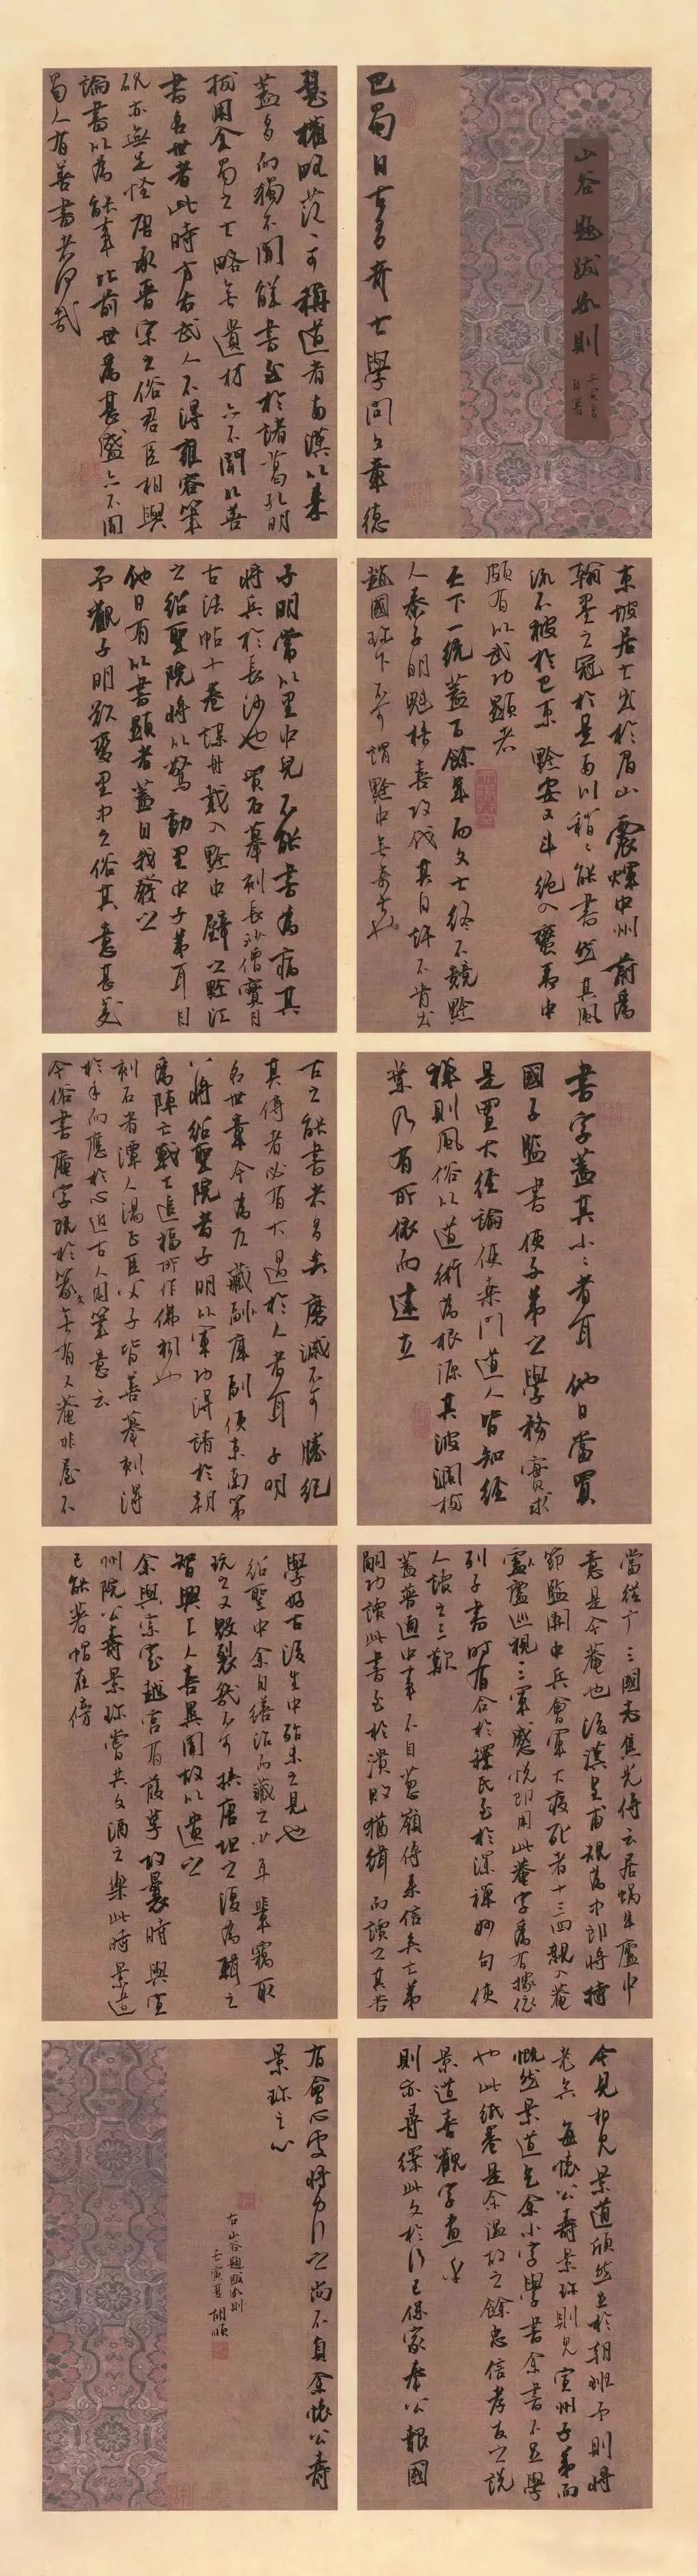 山谷題跋四則
壬寅夏
自署
巴蜀自古多奇士學問文章德
慧權略落落可稱道者兩漢以來
蓋多而獨不聞解書至於諸葛孔明
拔用全蜀之士略無遺材亦不聞以善
書名世者此時方右武人不得雍容筆
硯亦無足怪唐承晉宋之俗君臣相與
論書以為能事比前世為甚盛亦不聞
蜀人有善書者何哉
東坡居士出於眉山震輝中州蔚為
翰墨之冠於是兩川稍稍能書然其風
流不被於巴東黔安又斗絕入蠻夷中
頗有以武功顯者
天下一統蓋百餘年而文士終不競黔
人秦子明魁梧喜攻伐其自許不肯出
趙國珍下不可謂黔中無奇士也
子明常以里中兒不能書為病其
將兵於長沙也買石摹刻長沙僧寶月
古法帖十卷謀舟載入黔中壁之黔江
之紹聖院將以驚動里中子弟耳目
他日有以書顯者蓋自我發之
予觀子明欲變里中之俗其意甚美
書字蓋其小小者耳他日當買
國子監書使子弟之學務實求
是買大經論使桑門道人皆知經
禪則風俗以道術為根源其波瀾枝
葉乃有所依而建立
古之能書者多矣磨滅不可勝紀
其傳者必有大過於人者耳子明
名世章今為左藏副庫副使東南第
八將紹聖院者子明以軍功得請於朝
為陣亡戰士追福所作佛祠也
刻石者潭人湯正臣父子皆善摹刻得
於手而應於心近古人用筆意云
今俗書庵字既於篆文無有又庵非屋不
當從广三國志焦先傳云居蝸牛廬中
意是今菴也後漢皇甫規為中郎將持
節監關中兵會軍大疫死者十三四親入菴
廬巡視三軍感悅即用此菴字為有據依
列子書時有合於釋氏至於深禪妙句使
人讀之三歎
蓋普通中事不自蔥嶺傳來信矣士弟
嗣功讀此書至於潰敗猶緝而讀之其苦
學好古後生中殆未之見也
紹聖中余自繕治而藏之少年輩竊取
玩之又毀裂幾不可挾唐坦之復為輯之
智興上人喜異聞故以遺之
余與宗室越宮有葭莩故曩時與宣
州院公壽景珍嘗共文酒之樂此時景道
已能著帽在傍
今見相見景道頎然立於朝班予則將
老矣每懷公壽景珍則見宣州子弟而
慨然景道乞余小字學書余書不足學
也此紙卷是余溫故之餘忠信孝友之說
景道喜觀字畫乎
則亦尋繹此文於行已保家奉公報國
有會心處時力行之尚不負余懷公壽
景珍之心
右山谷題跋四則
壬寅夏胡順